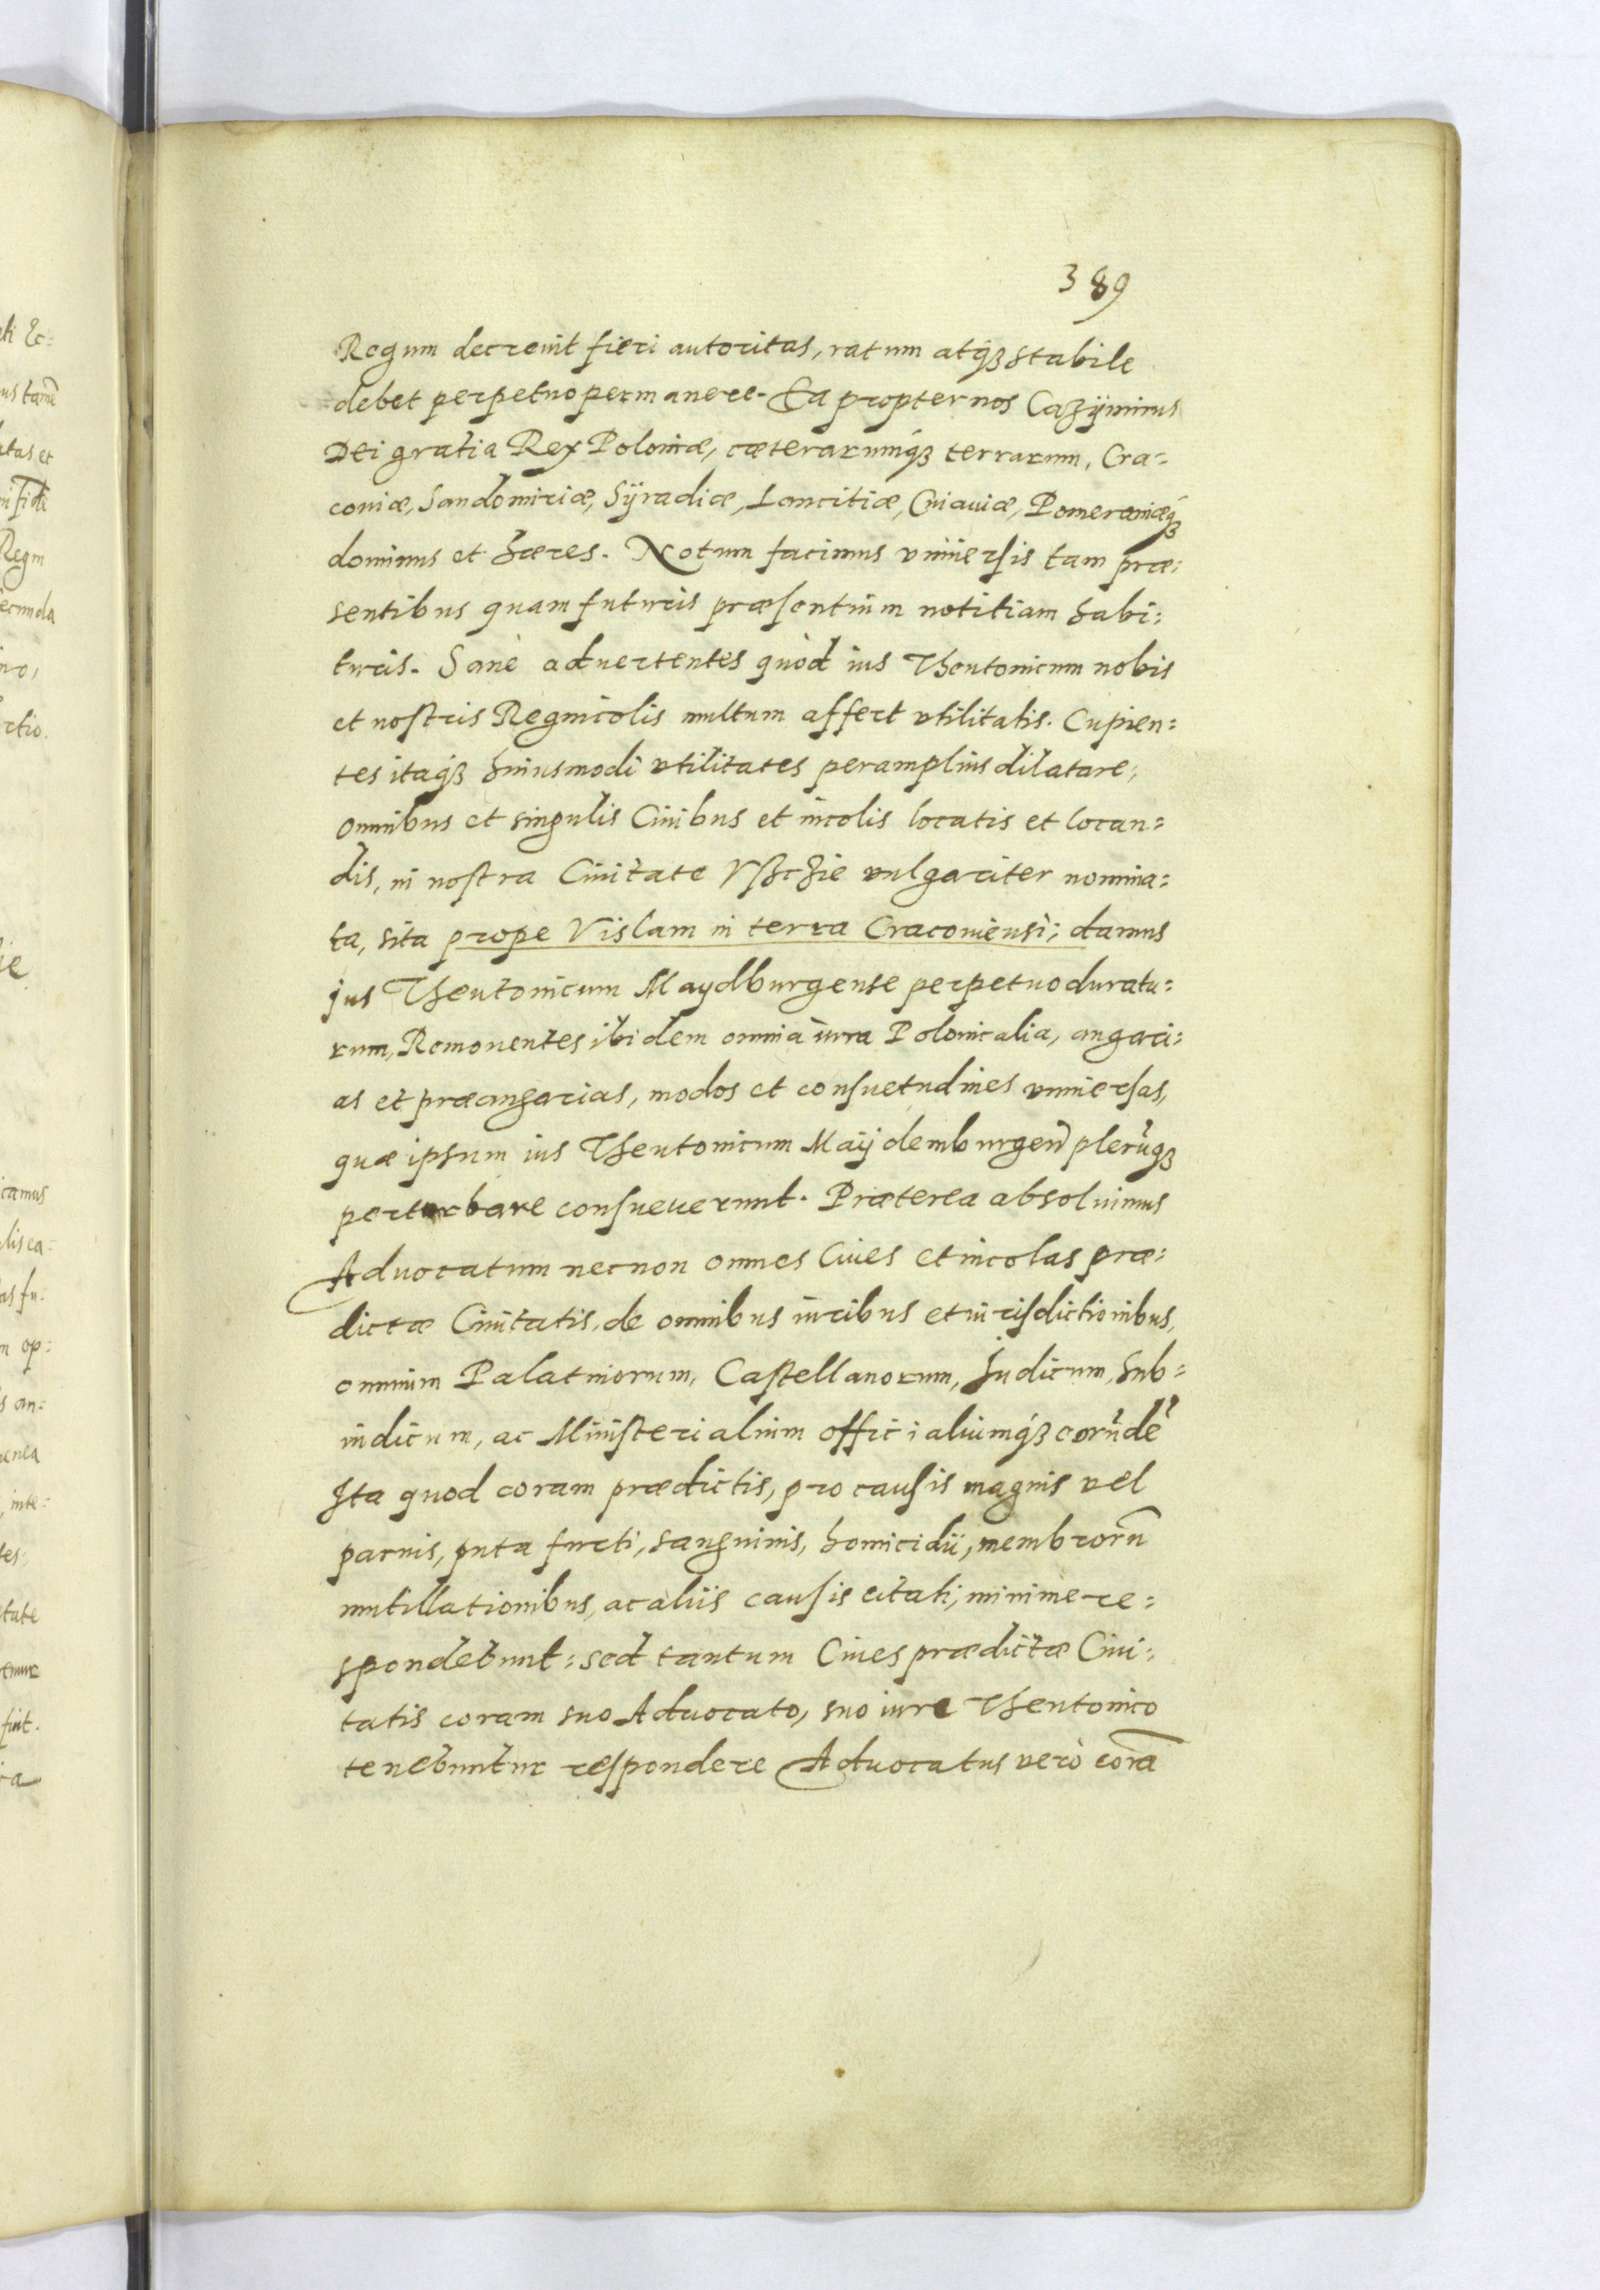 389
Regum decreuit fieri autoritas, ratum atq́ꝫ stabile
debet perpetuo permanere. Ea propter nos Cazÿmirus
Dei gratia Rex Poloniæ, cæterarumq́ꝫ terrarum, Cra-
couiæ, Sandomiriæ, Sÿradiæ, Lancitiæ, Cuiauiæ, Pomeraniæq́ꝫ
dominus et hæres. Notum facimus vniuersis tam præ:
sentibus quam futuris præsentium notitiam habi:
turis. Sanè aduertentes quòd ius Theutonicum nobis
et nostris Regnicolis multum affert vtilitatis. Cupien=
tes itaq́ꝫ huiusmodi vtilitates peramplius dilatare,
omnibus et singulis Ciuibus et incolis locatis et locan=
dis, in nostra Ciuitate Vszczie vulgariter nomina=
ta, sita prope Vislam in terra Cracouiensi; damus
jus Theutonicum Maydburgense perpetuo duratu=
rum, Remouentes ibidem omnia iura Polonicalia, angari=
as et præangarias, modos et consuetudines vniuersas,
quæ ipsum ius Theutonicum Maÿdemburgeñ plerũqꝫ
perturbare consueuerunt. Præterea absoluimus
Aduocatum necnon omnes Ciues et incolas præ:
dictæ Ciuitatis, de omnibus iuribus et iurisdictionibus,
omnium Palatinorum, Castellanorum, Judicum, Sub=
iudicum, ac Ministerialium officialiumq́ꝫ eorũdẽ
Ita quod coram prædictis, pro causis magnis vel
paruis, puta furti, sanguinis, homicidii, membrorũ
mutillationibus, ac aliis causis citati, minime re=
spondebunt: sed tantum Ciues prædictæ Ciui:
tatis coram suo Aduocato, suo iure Theutonico
tenebuntur respondere Aduocatus verò corã